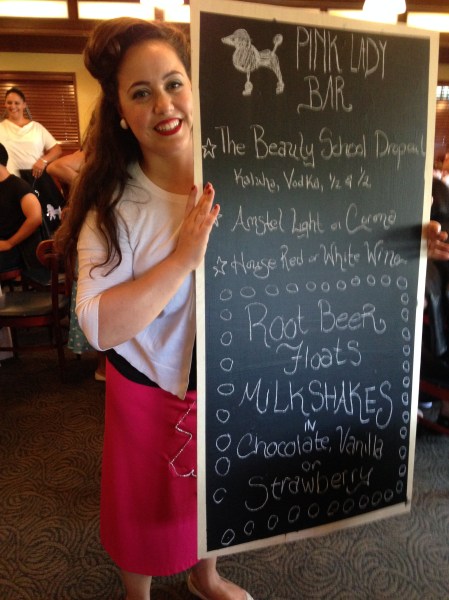 PINK LADY
BAR
The Beauty School Dropout
Kahlua, Vodka, 1/2 & 1/2
Amstel Light or Corona
House Red or White Wine
ROOT BEER
Floats
MILKSHAKES
in
Chocolate, Vanilla
or
Strawberry